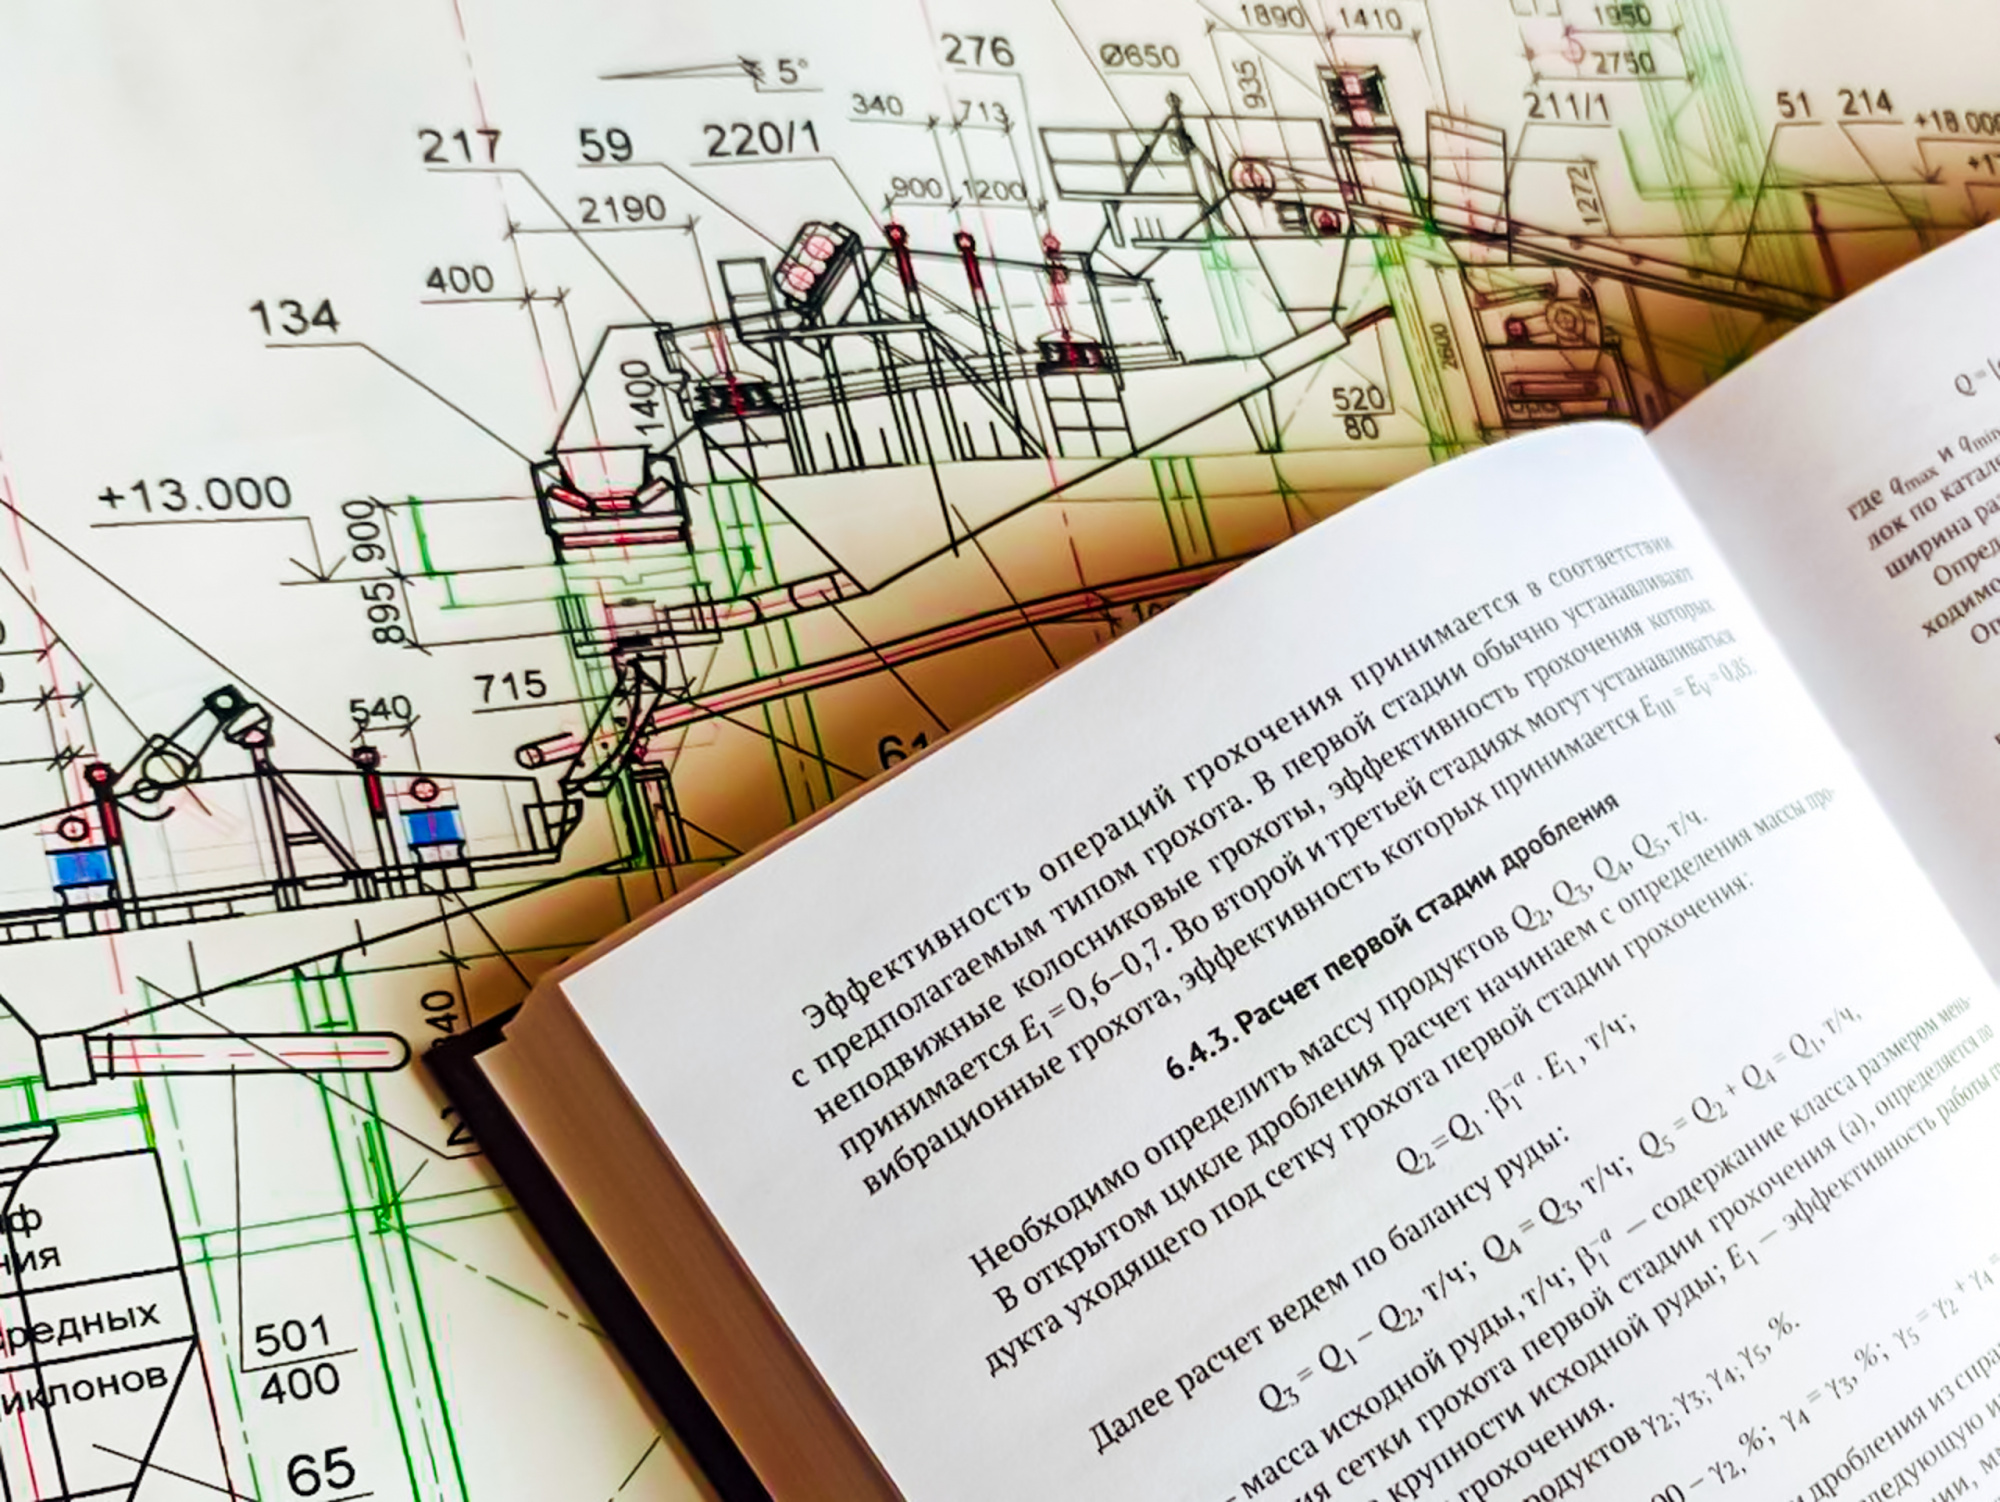 1890
1410
1950
276
Ø650
935
2750
5°
340
713
211/1
51
214
+18.000
217
59
220/1
900
1200
1272
2190
400
134
1400
2600
520
80
+13.000
900
895
715
540
501
400
65
редных
Эффективность операций грохочения принимается в соответствии
с предполагаемым типом грохота. В первой стадии обычно устанавливают
неподвижные колосниковые грохоты, эффективность грохочения которых
принимается E₁ = 0,6–0,7. Во второй и третьей стадиях могут устанавливаться
вибрационные грохота, эффективность которых принимается E_III = E_V = 0,85.
6.4.3. Расчет первой стадии дробления
Необходимо определить массу продуктов Q₂, Q₃, Q₄, Q₅, т/ч.
В открытом цикле дробления расчет начинаем с определения массы про-
дукта уходящего под сетку грохота первой стадии грохочения:
Q₂ = Q₁ · β₁⁻ᵃ · E₁, т/ч;
Далее расчет ведем по балансу руды:
Q₃ = Q₁ – Q₂, т/ч; Q₄ = Q₃, т/ч; Q₅ = Q₂ + Q₄ = Q₁, т/ч,
масса исходной руды, т/ч; β₁⁻ᵃ — содержание класса размером мень-
сетки грохота первой стадии грохочения (а), определяется по
крупности исходной руды; E₁ — эффективность работы
грохочения.
γ₂; γ₃; γ₄; γ₅, %.
– γ₂, %; γ₄ = γ₃, %; γ₅ = γ₂ + γ₄ =
дробления из
где q_max и q_min
лок по
ширина